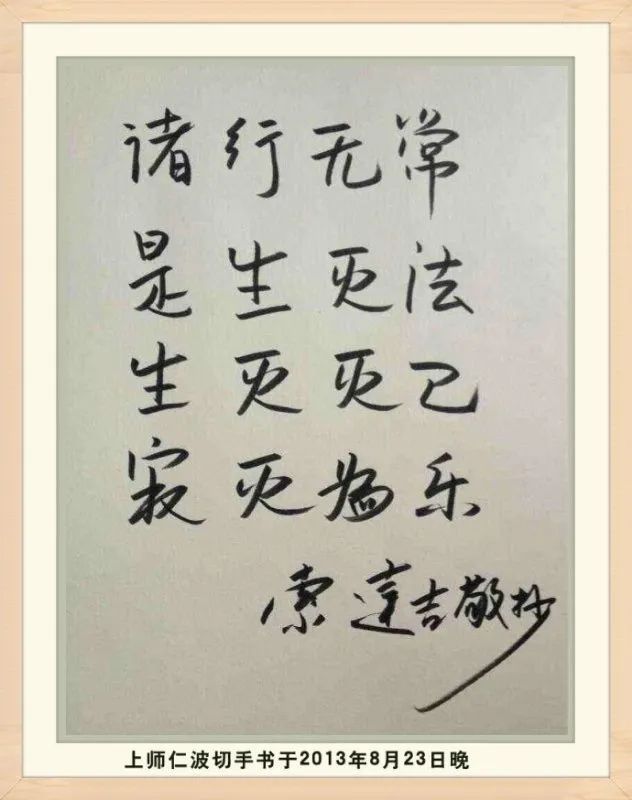 诸行无常
是生灭法
生灭灭已
寂灭为乐
索达吉敬抄
上师仁波切手书于2013年8月23日晚